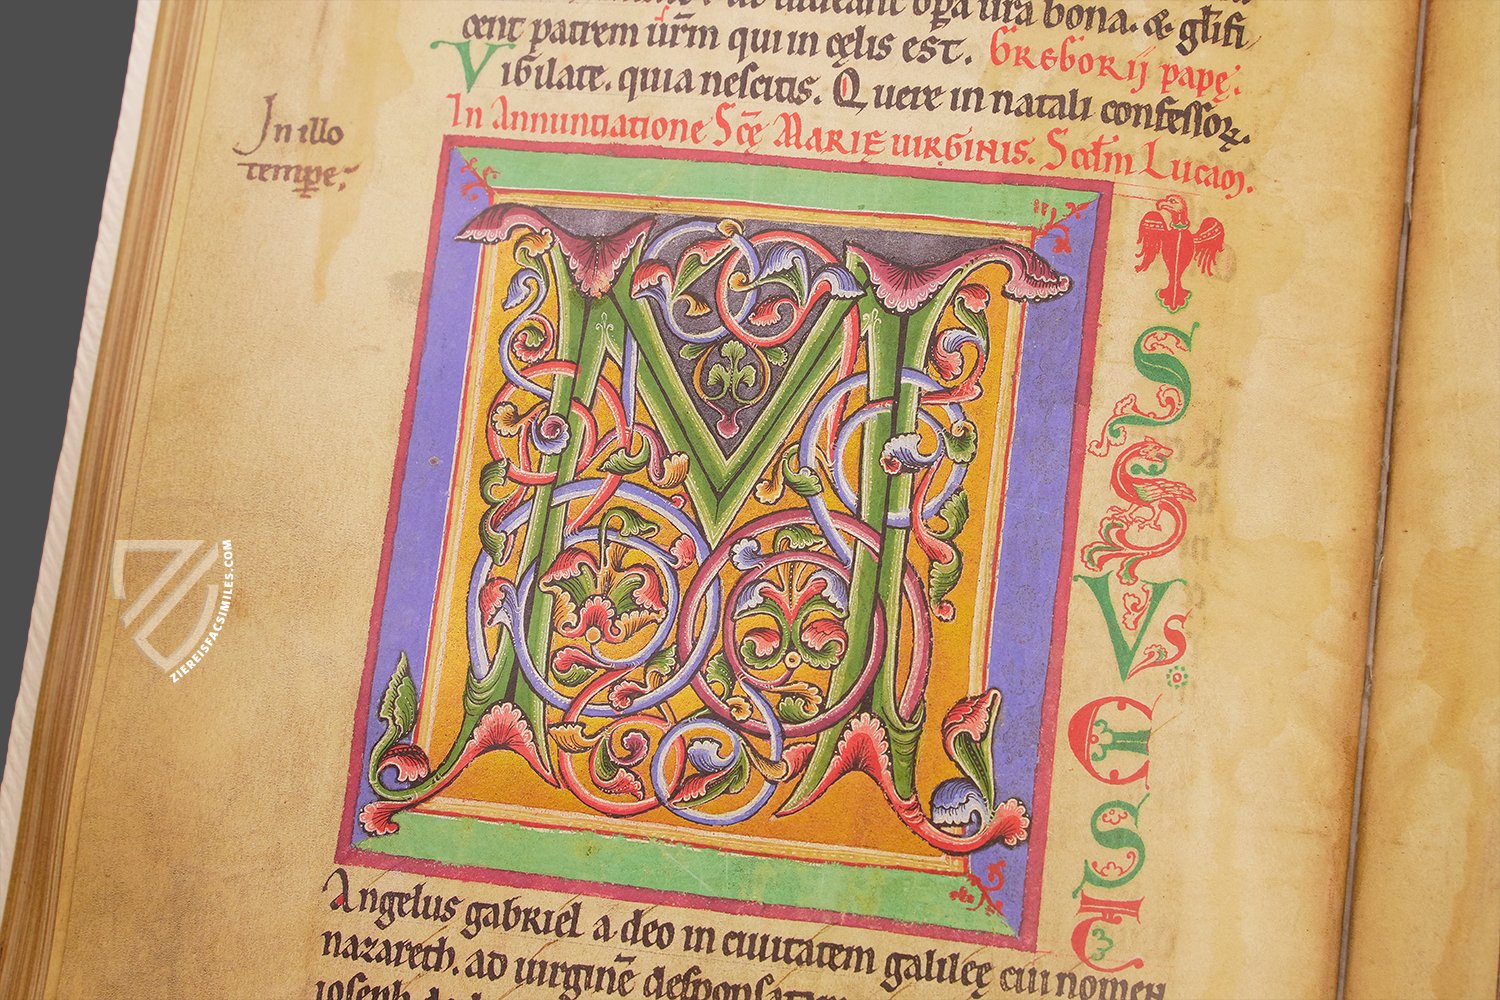 ut uideant op̄a ura bona. & gl̄ifi
cent patrem ur̄m qui in cęlis est. Gregorij papę.
Vigilate. quia nescitis. Quere in natali confessoꝝ.
In Annuntiatione Sc̄ę MARIE uirginis. Scd̄m Lucam.
In illo
temꝑe;
M
ISSVS
EST
Angelus gabriel a deo in ciuitatem galileę cui nomen
nazareth. ad uirginē
ioseph
ZIEREISFACSIMILES.COM